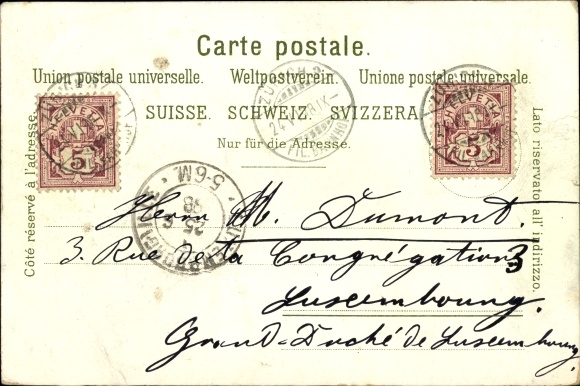 Carte postale.
Union postale universelle. Weltpostverein. Unione postale universale.
SUISSE. SCHWEIZ. SVIZZERA.
Nur für die Adresse.
Côté réservé à l'adresse.
Lato riservato all' indirizzo.
HELVETIA
5
HELVETIA
5
ZÜRICH
5-6M
25
98
Herrn M. Dumont.
3. Rue de la Congrégation 3
Luxembourg.
Grand-Duché de Luxembourg.